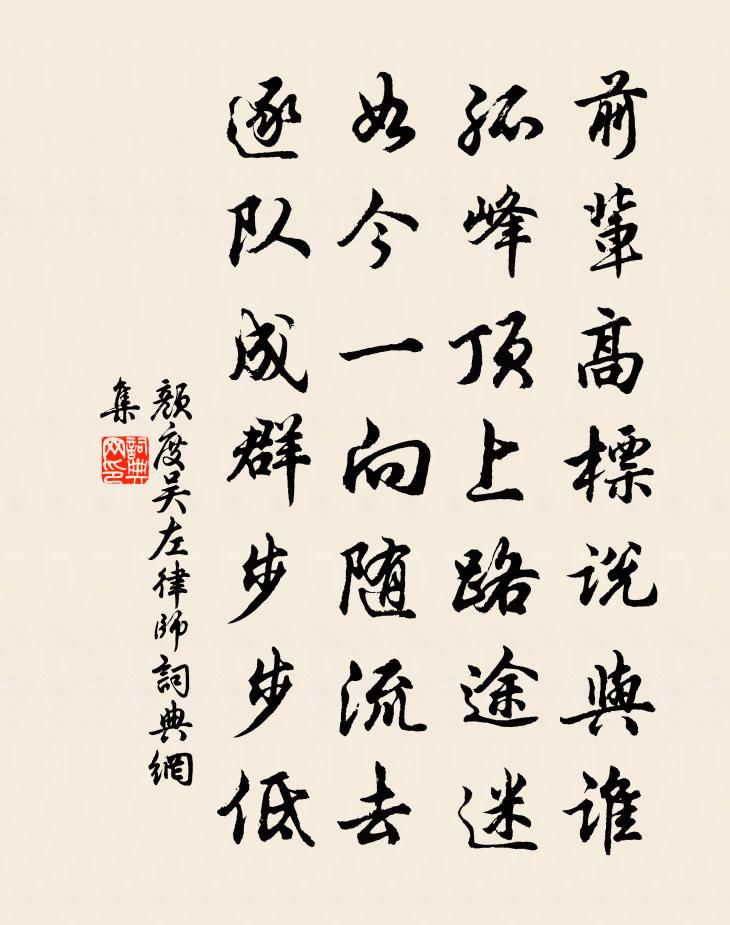 前輩高標説與誰
孤峰頂上路途迷
如今一向随流去
逐队成群步步低
顏度吴左律師詞典網
集
詞典
网印